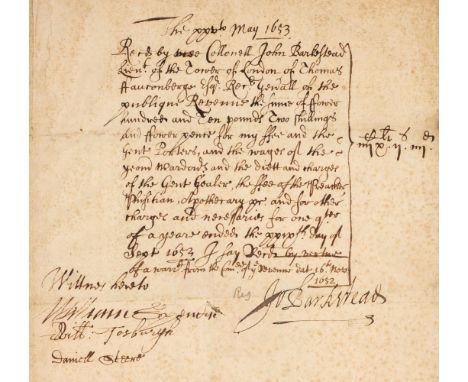 The xxvth May 1653
Recd by mee Collonell John Barkestead
Lieut. of the Tower of London of Thomas
Fauconberge Esqr. Recr. Genall of the
publique Revenue the summe of ffower
hundred and Ten pounds Two shillings
and ffower pence for my ffee and the
Gent Porters, and the wages of the
yeond Wardors and the diett and charges
of the Gent Goaler, the ffee of the Preacher
Phisitian, Apothecary &c and for other
charges and necessaries for one qter
of a yeare ended the day of
Sept 1652 I say Recd. by vertue
of a warrt. from the Comrs. of ye Revenue dat 16 Nov
1652
li s d
iiijcx. ij. iiij.
Wittnes hereto
William
Will:
Daniell Steere
Reg
Jo Barkstead